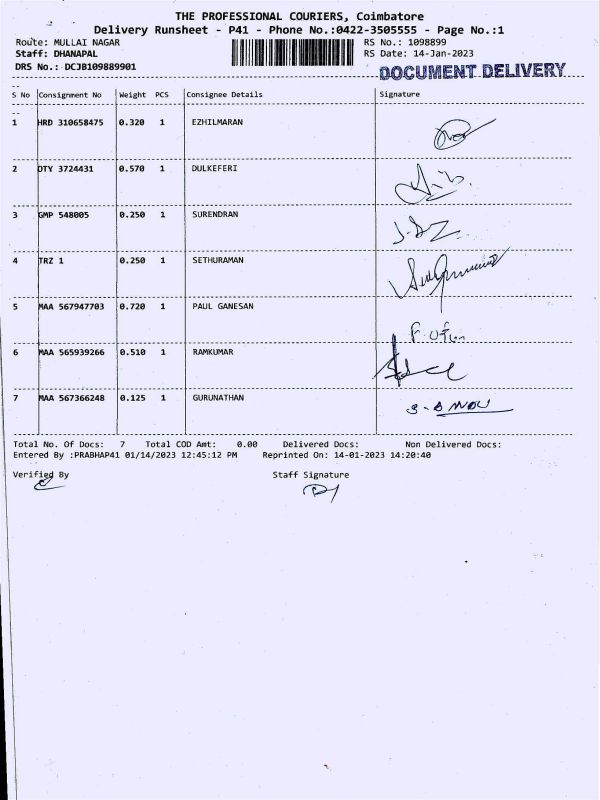 THE PROFESSIONAL COURIERS, Coimbatore
Delivery Runsheet - P41 - Phone No.:0422-3505555 - Page No.:1
Route: MULLAI NAGAR RS No.: 1098899
Staff: DHANAPAL RS Date: 14-Jan-2023
DRS No.: DCJB109889901 DOCUMENT DELIVERY
S No Consignment No Weight PCS Consignee Details Signature
1 HRD 310658475 0.320 1 EZHILMARAN
2 DTY 3724431 0.570 1 DULKEFERI
3 GMP 548005 0.250 1 SURENDRAN
4 TRZ 1 0.250 1 SETHURAMAN
5 MAA 567947703 0.720 1 PAUL GANESAN
6 MAA 565939266 0.510 1 RAMKUMAR
7 MAA 567366248 0.125 1 GURUNATHAN
Total No. Of Docs: 7 Total COD Amt: 0.00 Delivered Docs: Non Delivered Docs:
Entered By :PRABHAP41 01/14/2023 12:45:12 PM Reprinted On: 14-01-2023 14:20:40
Verified By Staff Signature